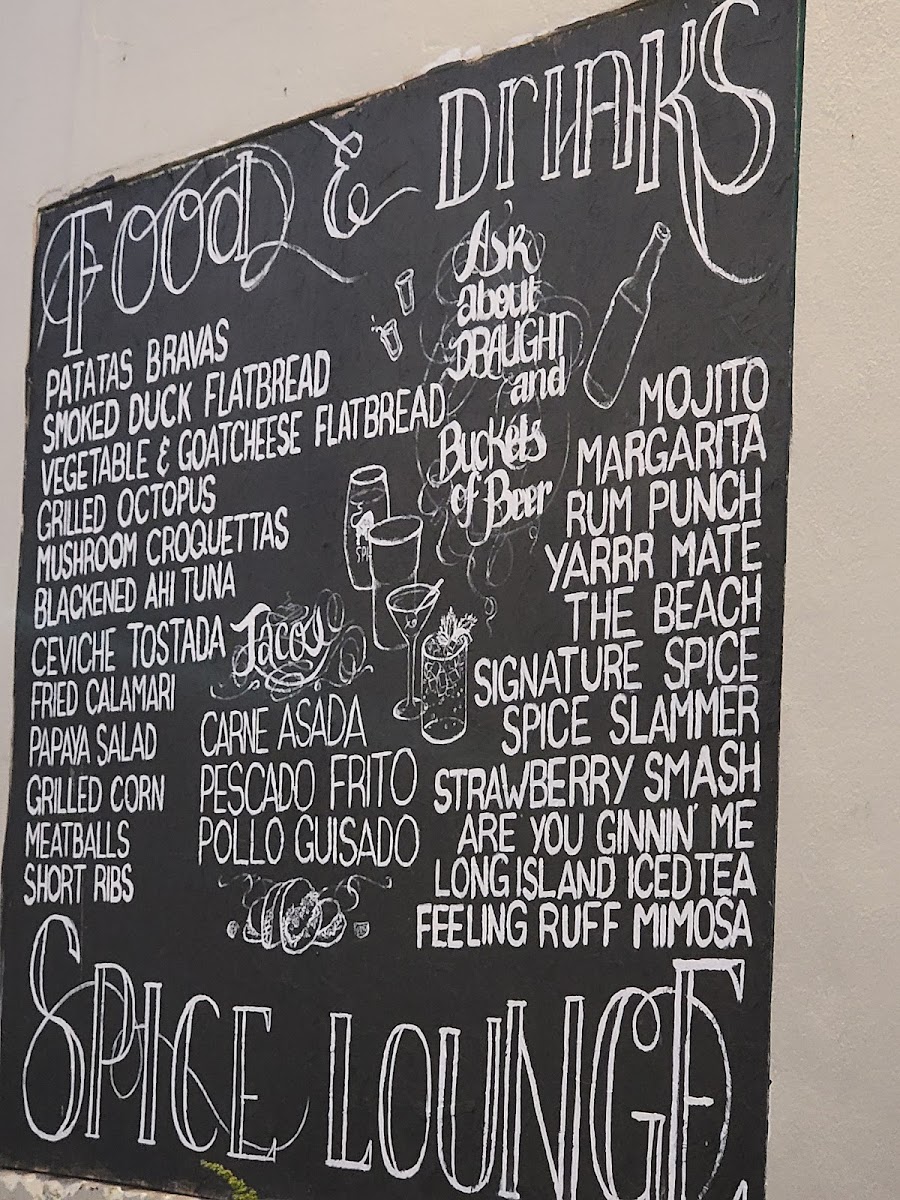 FOOD & DRINKS
Ask
about
DRAUGHT
and
Buckets
of Beer
PATATAS BRAVAS
SMOKED DUCK FLATBREAD
VEGETABLE & GOATCHEESE FLATBREAD
GRILLED OCTOPUS
MUSHROOM CROQUETTAS
BLACKENED AHI TUNA
CEVICHE TOSTADA
FRIED CALAMARI
PAPAYA SALAD
GRILLED CORN
MEATBALLS
SHORT RIBS
Tacos
CARNE ASADA
PESCADO FRITO
POLLO GUISADO
MOJITO
MARGARITA
RUM PUNCH
YARRR MATE
THE BEACH
SIGNATURE SPICE
SPICE SLAMMER
STRAWBERRY SMASH
ARE YOU GINNIN' ME
LONG ISLAND ICED TEA
FEELING RUFF MIMOSA
SPICE LOUNGE